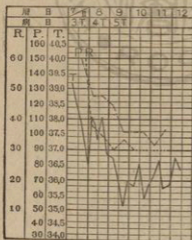 月 日 7/7 8 9 10 11 12
病 日 3T 4T 5T
R. P. T.
160 40,5
60 150 40,0
140 39,5
50 130 39,0
120 38,5
40 110 38,0
100 37,5
30 90 37,0
80 36,5
20 70 36,0
60 35,5
10 50 35,0
40 34,5
30 34,0
PR
T